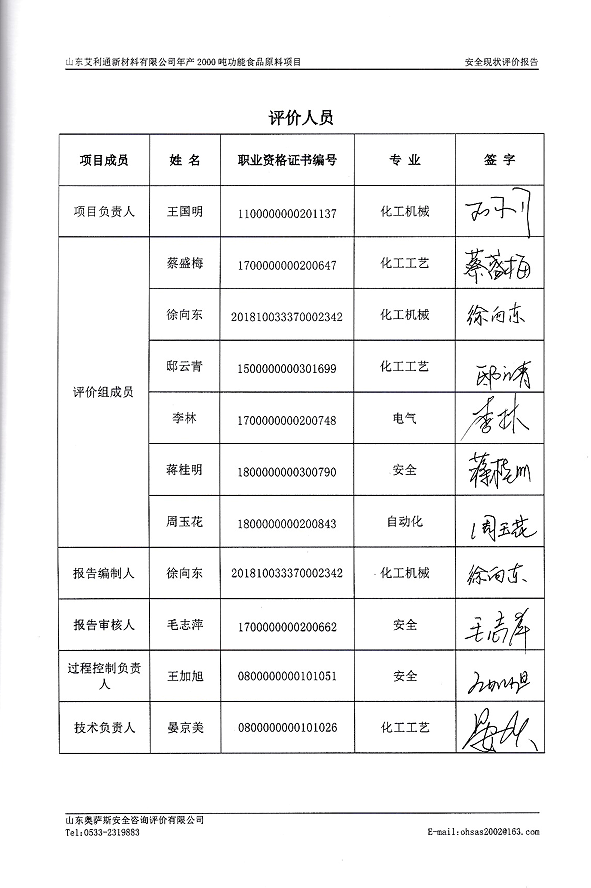 山东艾利通新材料有限公司年产2000吨功能食品原料项目 安全现状评价报告
评价人员
项目成员 姓名 职业资格证书编号 专业 签字
项目负责人 王国明 1100000000201137 化工机械
评价组成员 蔡盛梅 1700000000200647 化工工艺 蔡盛梅
徐向东 201810033370002342 化工机械 徐向东
邸云青 1500000000301699 化工工艺 邸云青
李林 1700000000200748 电气 李林
蒋桂明 1800000000300790 安全 蒋桂明
周玉花 1800000000200843 自动化 周玉花
报告编制人 徐向东 201810033370002342 化工机械 徐向东
报告审核人 毛志萍 1700000000200662 安全 毛志萍
过程控制负责
人 王加旭 0800000000101051 安全
技术负责人 晏京美 0800000000101026 化工工艺
山东奥萨斯安全咨询评价有限公司
Tel:0533-2319883 E-mail:ohsas2002@163.com